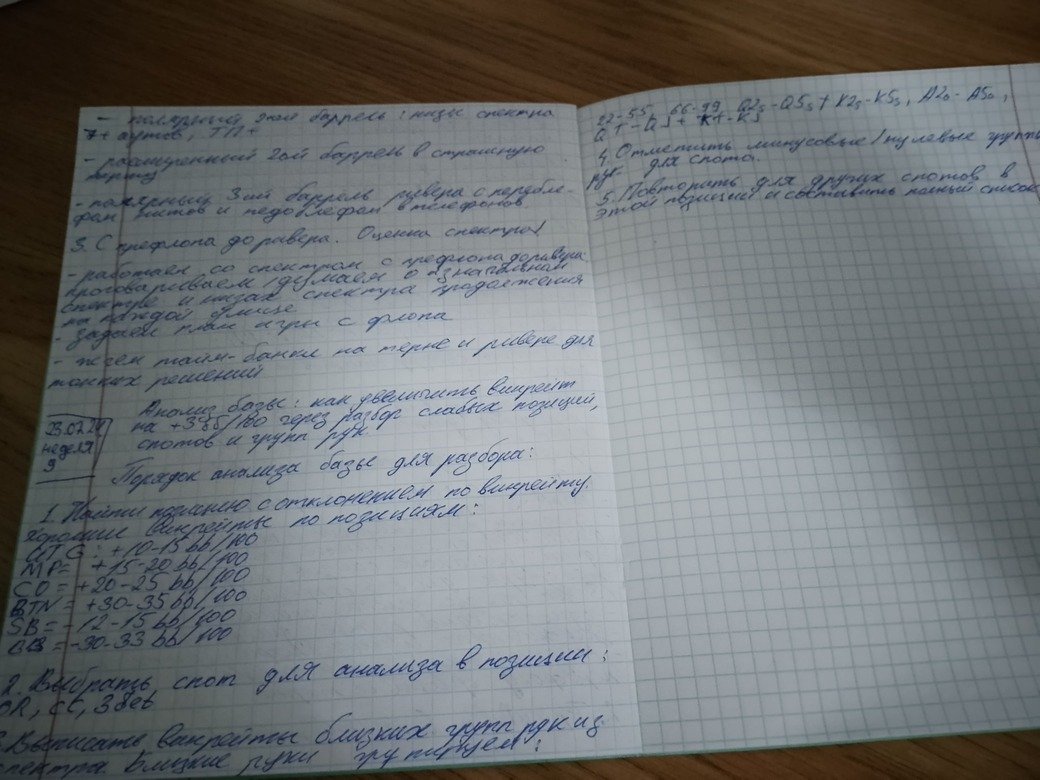 - полярный 2ой баррель: низы спектра
7+ аутов, ТП+
- расширенный 2ой баррель в страшную
терну
- полярный 3ий баррель ривера с перебле-
фом фитов и недоблефом в телефонов
3. С префлопа до ривера. Оценка спектра/
- работаем со спектром с префлопа до ривера
проговариваем/думаем о изначальном
спектре и низах спектра продолжения
на каждой улице
- задаем план игры с флопа
- жгем тайм-банки на терне и ривере для
тонких решений
23.02.21
неделя
9
Анализ базы: как увеличить винрейт
на +3ББ/100 через разбор слабых позиций,
спотов и групп рук
Порядок анализа базы для разбора:
1. Найти позицию с отклонением по винрейту.
хорошие винрейты по позициям:
UTG: +10-15 bb/100
MP= +15-20 bb/100
CO = +20-25 bb/100
BTN = +30-35 bb/100
SB = -12-15 bb/100
BB = -30-33 bb/100
2. Выбрать спот для анализа в позиции:
OR, CC, 3bet
3. Выписать винрейты близких групп рук из
спектра. Близкие руки группируем:
22-55, 66-99, Q2s-Q5s + K2s-K5s, A2o-A5o,
QT-QJ + KT-KJ
4. Отметить минусовые/нулевые группы
рук для спота.
5. Повторить для других спотов в
этой позиции и составить полный список